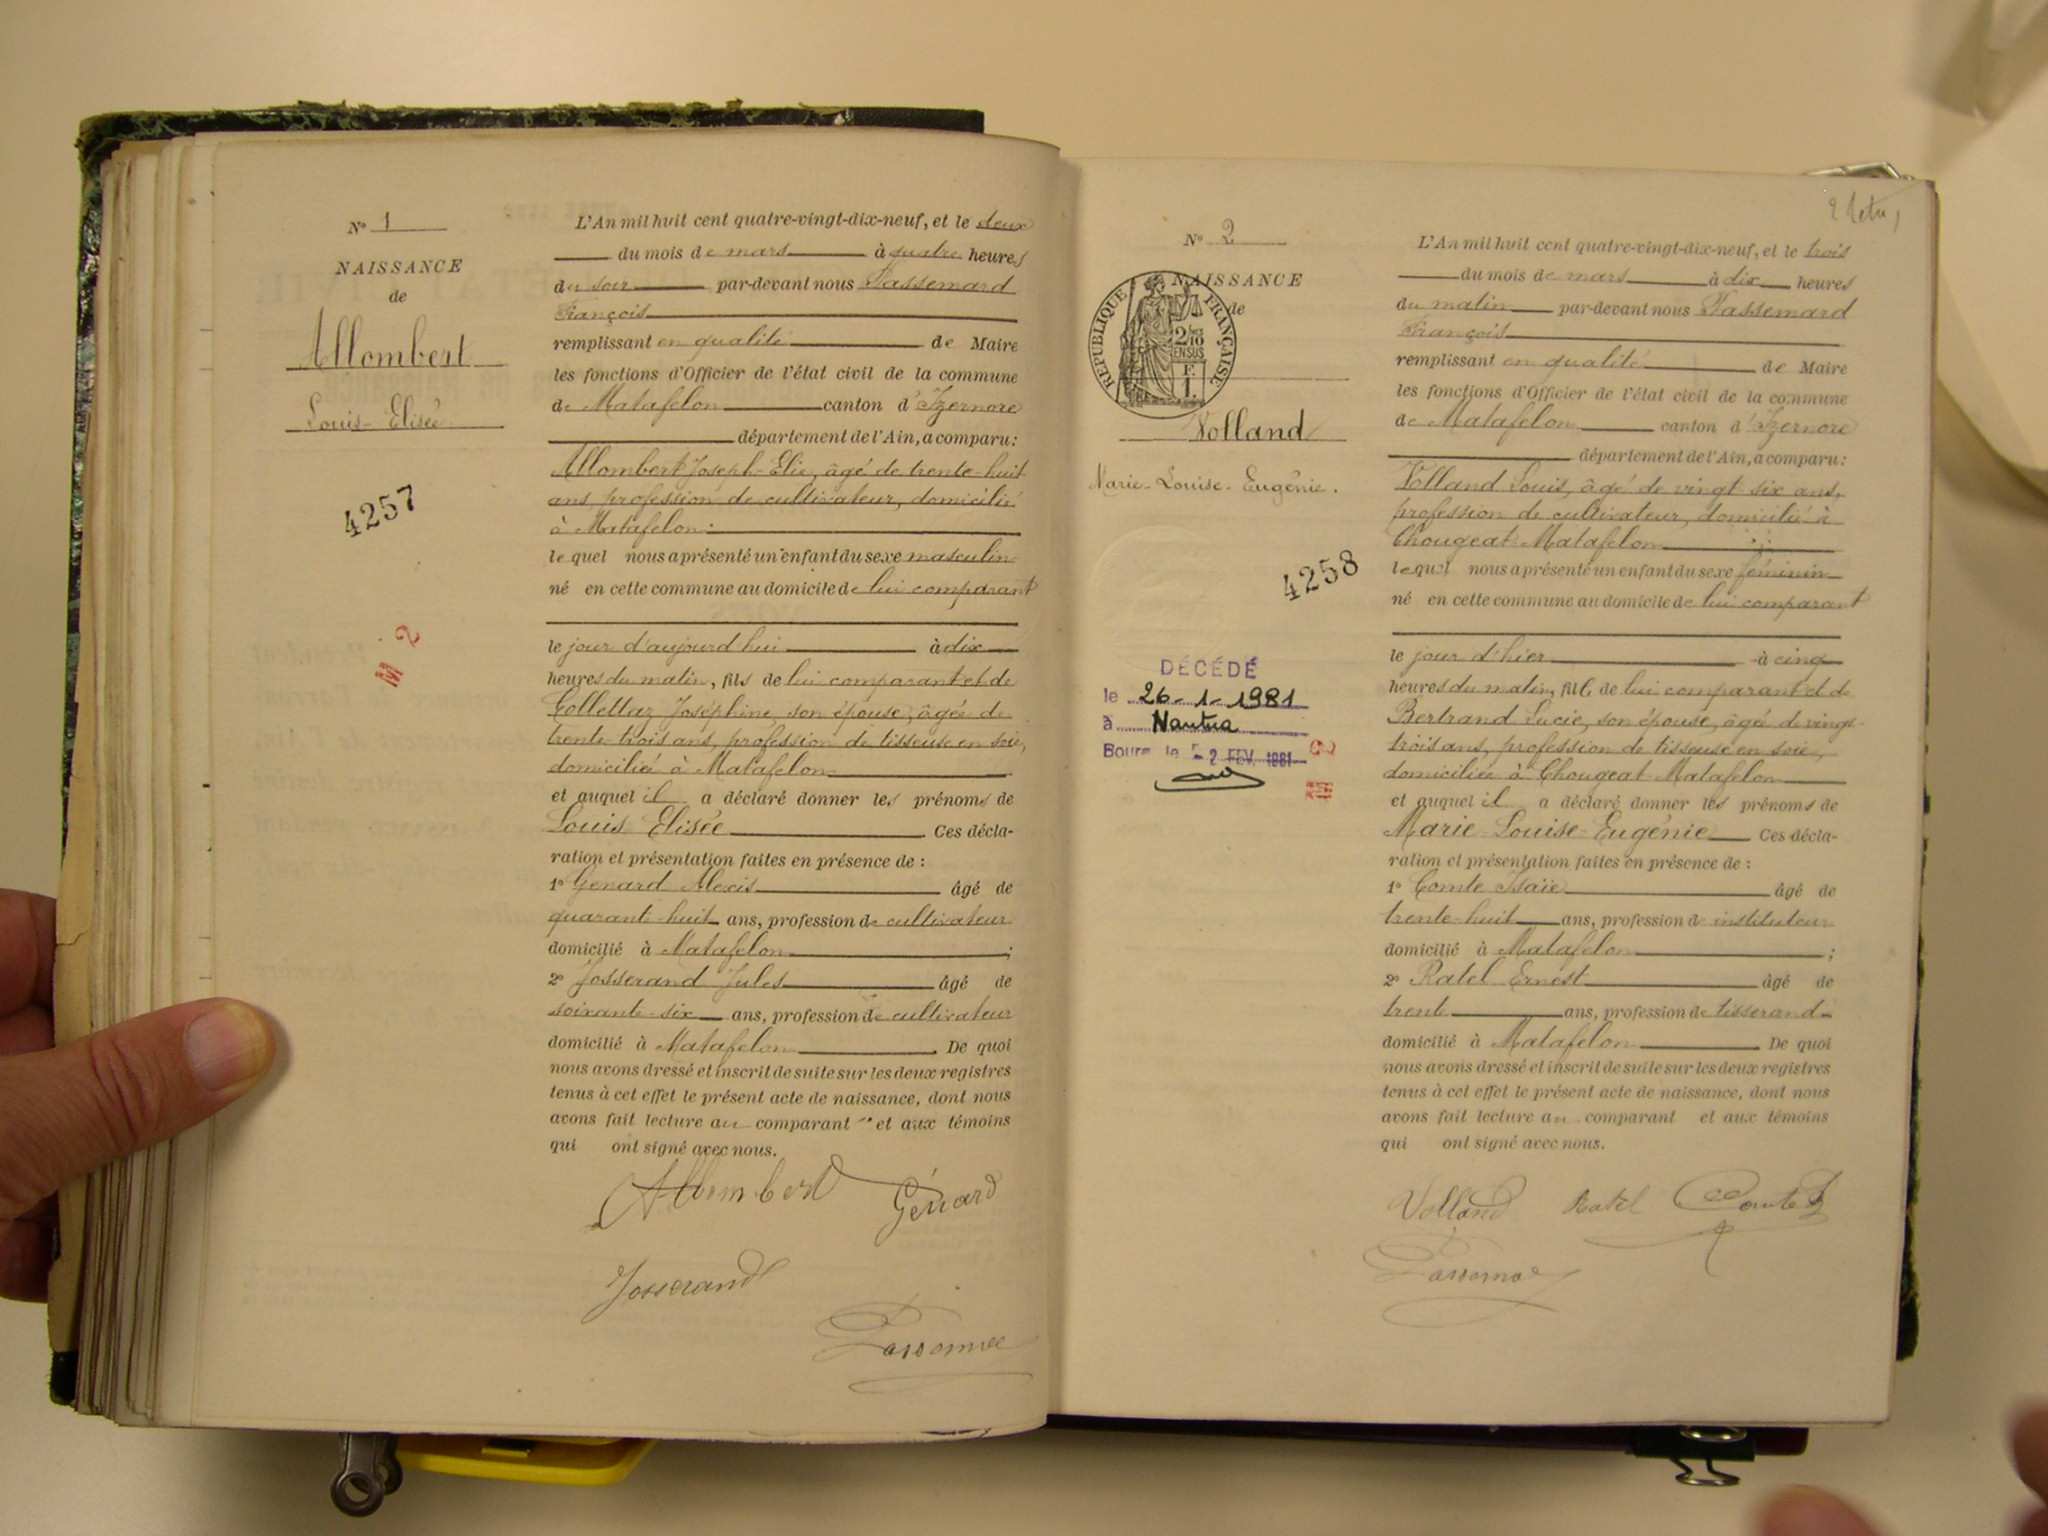 N° 1
NAISSANCE
de
Allombert
Louis-Elisée
4257
M 2
L'An mil huit cent quatre-vingt-dix-neuf, et le deux
du mois de mars à quatre heures
du soir par-devant nous Tassemard
François
remplissant en qualité de Maire
les fonctions d'Officier de l'état civil de la commune
de Matafelon canton d'Izernore
département de l'Ain, a comparu:
Allombert Joseph-Elie, âgé de trente-huit
ans, profession de cultivateur, domicilié
à Matafelon:
lequel nous a présenté un enfant du sexe masculin
né en cette commune au domicile de lui comparant
le jour d'aujourd'hui à dix
heures du matin, fils de lui comparant et de
Collettaz Joséphine, son épouse, âgée de
trente-trois ans, profession de tisseuse en soie,
domiciliée à Matafelon
et auquel il a déclaré donner les prénoms de
Louis Elisée Ces décla-
ration et présentation faites en présence de :
1° Genard Alexis âgé de
quarante-huit ans, profession de cultivateur
domicilié à Matafelon ;
2° Josserand Jules âgé de
soixante-six ans, profession de cultivateur
domicilié à Matafelon. De quoi
nous avons dressé et inscrit de suite sur les deux registres
tenus à cet effet le présent acte de naissance, dont nous
avons fait lecture au comparant et aux témoins
qui ont signé avec nous.
Allombert Génard
Josserand
2
N° 2
NAISSANCE
de
RÉPUBLIQUE FRANÇAISE
2/10
EN SUS
F.
1.
Volland
Marie-Louise-Eugénie.
4258
DÉCÉDÉ
le 26-1-1981
à Nantua
Bourg le - 2 FEV. 1981
L'An mil huit cent quatre-vingt-dix-neuf, et le trois
du mois de mars à dix heures
du matin par-devant nous Tassemard
François
remplissant en qualité de Maire
les fonctions d'Officier de l'état civil de la commune
de Matafelon canton d'Izernore
département de l'Ain, a comparu:
Volland Louis, âgé de vingt-six ans,
profession de cultivateur, domicilié à
Chougeat-Matafelon
lequel nous a présenté un enfant du sexe féminin
né en cette commune au domicile de lui comparant
le jour d'hier à cinq
heures du matin, fille de lui comparant et de
Bertrand Lucie, son épouse, âgée de vingt-
trois ans, profession de tisseuse en soie,
domiciliée à Chougeat-Matafelon
et auquel il a déclaré donner les prénoms de
Marie-Louise-Eugénie Ces décla-
ration et présentation faites en présence de :
1° Comte Isaïe âgé de
trente-huit ans, profession de instituteur
domicilié à Matafelon ;
2° Ratel Ernest âgé de
trente ans, profession de tisserand
domicilié à Matafelon. De quoi
nous avons dressé et inscrit de suite sur les deux registres
tenus à cet effet le présent acte de naissance, dont nous
avons fait lecture au comparant et aux témoins
qui ont signé avec nous.
Volland Ratel Comte